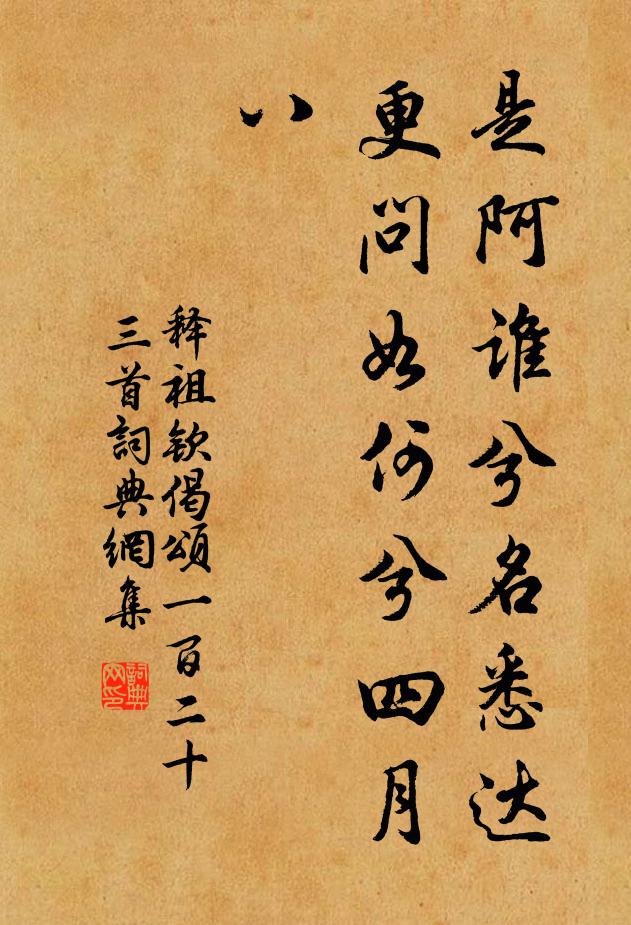 是阿谁兮名悉达
更问如何兮四月
八
释祖钦偈頌一百二十
三首詞典網集
詞典網印